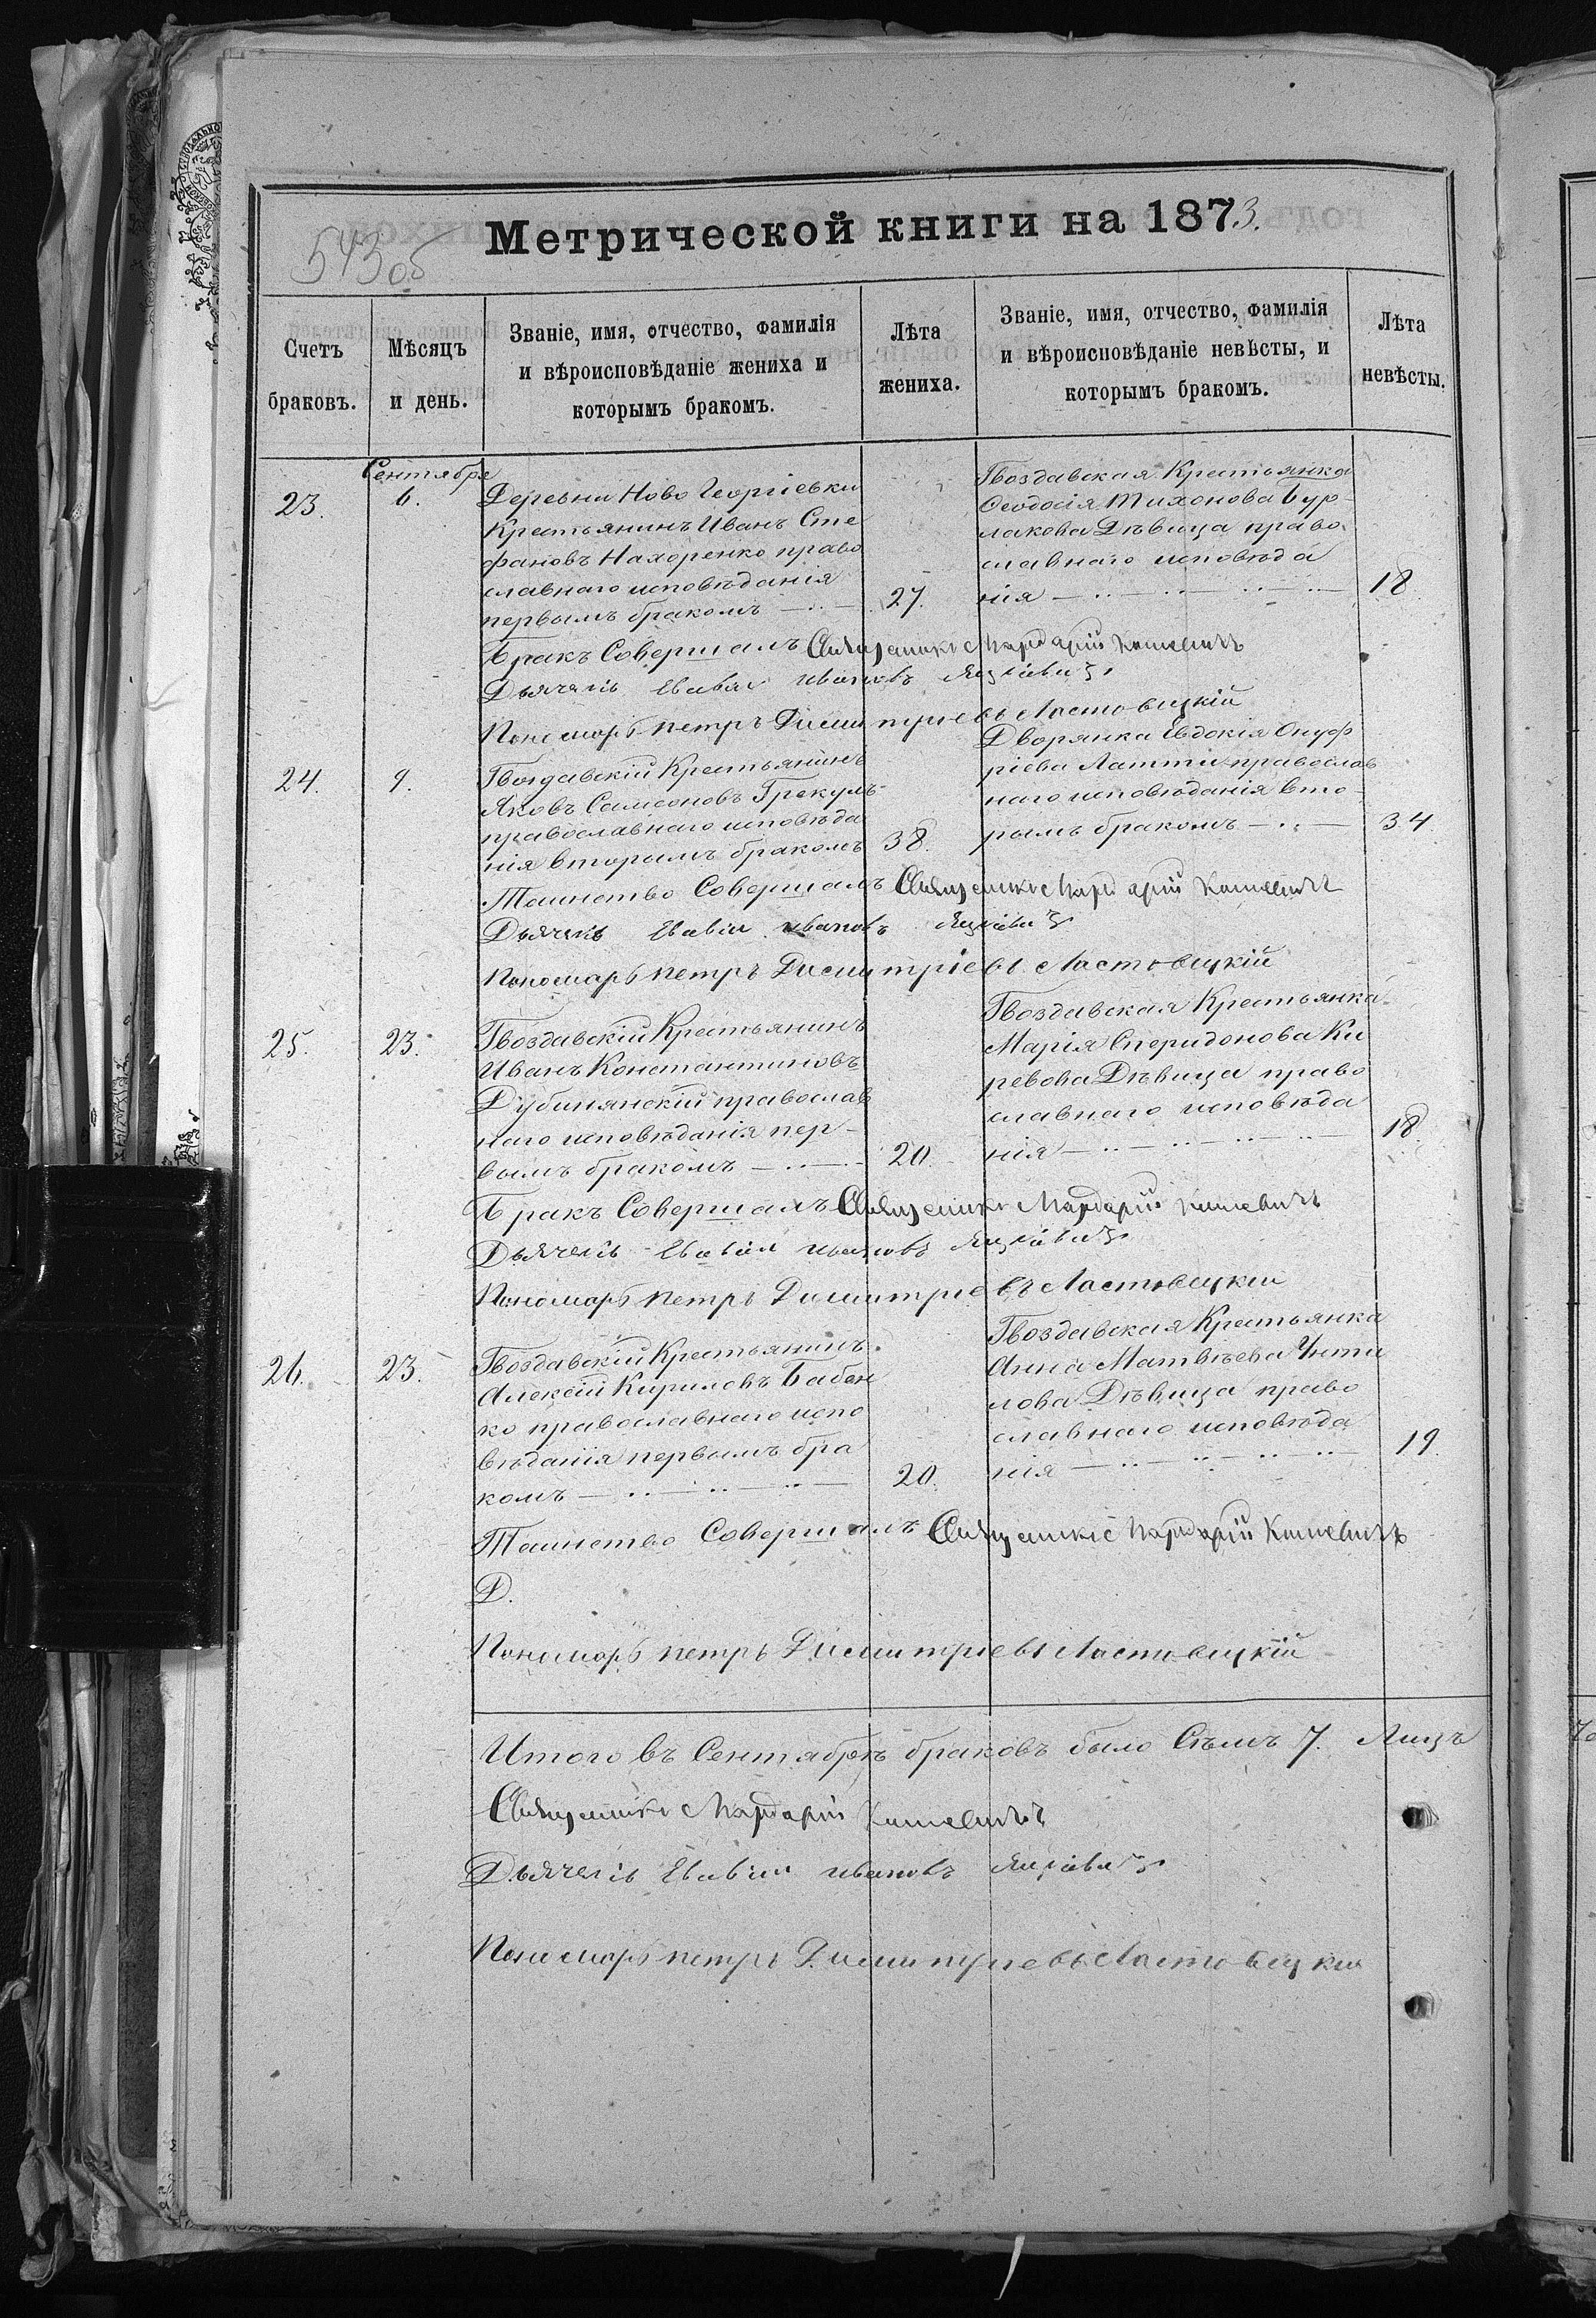 543 об
Метрической книги на 1873.
Счетъ браковъ.
Мѣсяцъ и день.
Званіе, имя, отчество, фамилія
и вѣроисповѣданіе жениха и
которымъ бракомъ.
Лѣта жениха.
Званіе, имя, отчество, фамилія
и вѣроисповѣданіе невѣсты, и
которымъ бракомъ.
Лѣта невѣсты.
Сентября
23. 6.
Деревни Ново Георгіевки
Крестьянинъ Иванъ Сте
фановъ Находенко право
славнаго исповѣданія
первымъ бракомъ 27.
Гвоздавская Крестьянка
Ѳеодосія Тихонова Бур
лакова Дѣвица право
славнаго исповѣда
нія 18.
Бракъ Совершалъ Священникъ Мардарій
Дьячекъ Ивановъ
Пономарь Петръ Димитріевъ Ластовецкій
24. 9.
Гвоздавскій Крестьянинъ
Яковъ Самсоновъ Грекулъ
православнаго исповѣда
нія вторымъ бракомъ 38.
Дворянка Евдокія Онуф
ріева Латти православ
наго исповѣданія вто
рымъ бракомъ 34.
Таинство Совершалъ Священникъ Мардарій
Дьячекъ Ивановъ
Пономарь Петръ Димитріевъ Ластовецкій
25. 23.
Гвоздавскій Крестьянинъ
Иванъ Константиновъ
Дубинянскій православ
наго исповѣданія пер-
вымъ бракомъ 20.
Гвоздавская Крестьянка
Марія Спиридонова Ки
ревова Дѣвица право
славнаго исповѣда
нія 18.
Бракъ Совершалъ Священникъ Мардарій
Дьячекъ Ивановъ
Пономарь Петръ Димитріевъ Ластовецкій
26. 23.
Гвоздавскій Крестьянинъ
Алексій Кириловъ Бабен
ко православнаго испо
вѣданія первымъ бра
комъ 20.
Гвоздавская Крестьянка
Анна Матвѣева
лова Дѣвица право
славнаго исповѣда
нія 19.
Таинство Совершалъ Священникъ Мардарій
Д.
Пономарь Петръ Димитріевъ Ластовецкій
Итого въ Сентябрѣ браковъ было Сѣмъ 7. Лицъ
Священникъ Мардарій
Дьячекъ Ивановъ
Пономарь Петръ Димитріевъ Ластовецкій